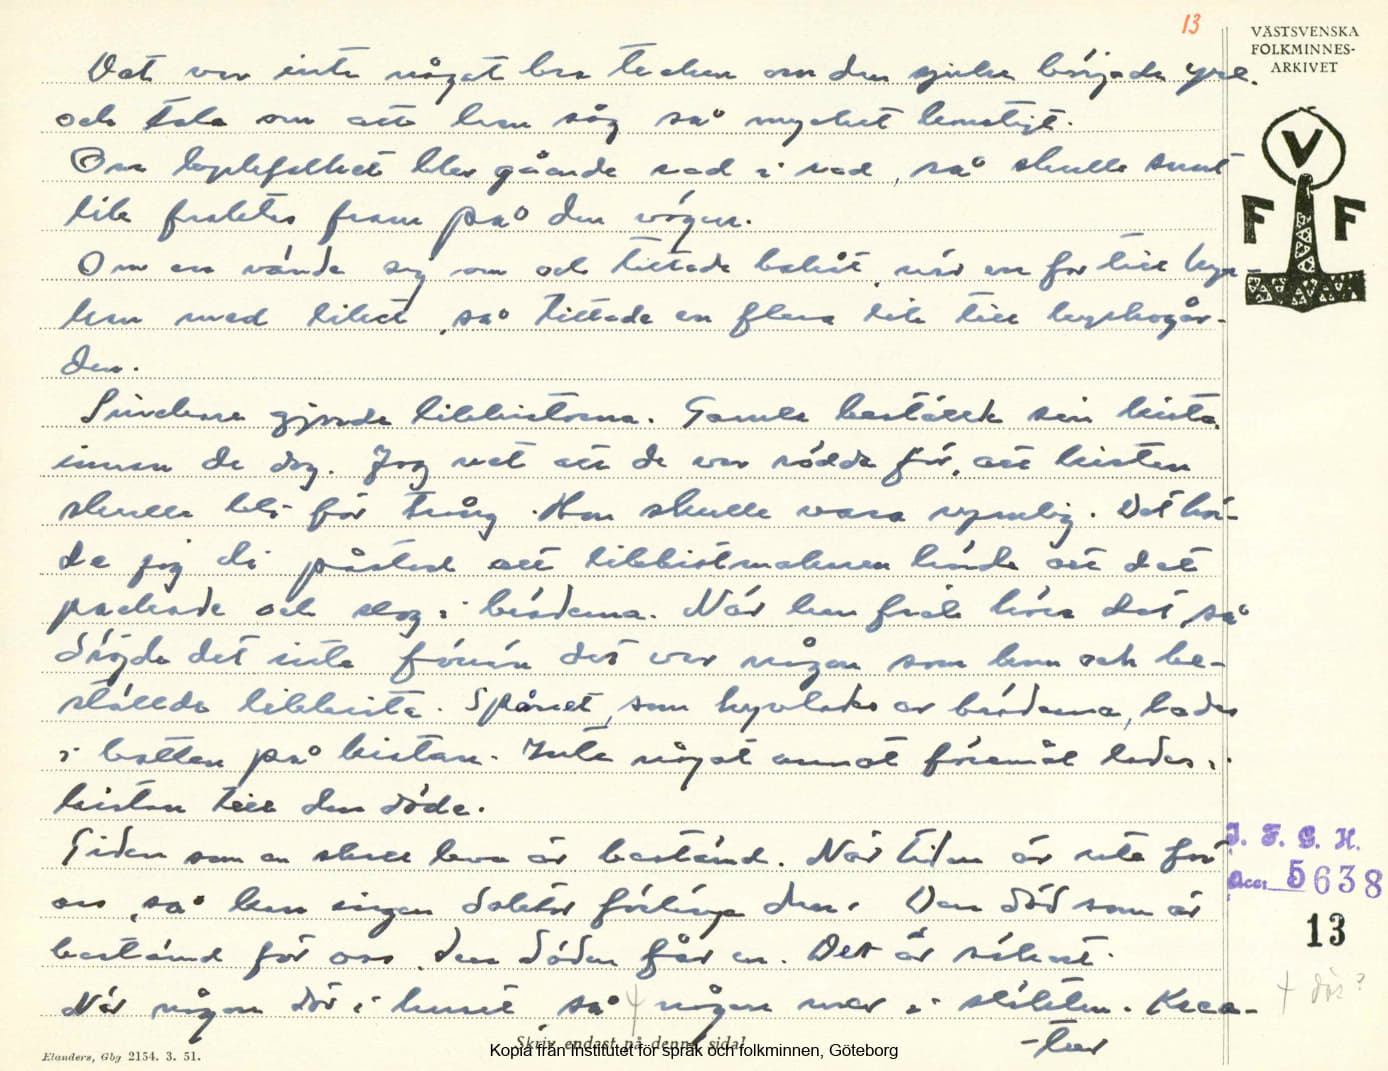 13
VÄSTSVENSKA
FOLKMINNES-
ARKIVET
V
F F
Det var inte något bra tecken om den sjuke började yra.
och tala om att han såg så mycket konstigt.
Om bylefolket blev gående rad i rad, så skulle snart
lik fraktas fram på den vägen.
Om en vände sig om och tittade bakåt, när en for till kyr-
kan med liket, så tittade en flera lik till kyrkogår-
den.
Snickarna gjorde likkistorna. Gamla beställde sin kista
innan de dog. Jag vet att de var rädda för, att kistan
skulle bli för trång. Han skulle vara rymlig. Det hör-
de jag di påstod att likkistmakaren hörde att det
packade och slog i bräderna. När han fick höra det, så
dröjde det inte förrän det var någon som kom och be-
ställde likkista. Spånet, som hyvlades av bräderna, lades
i botten på kistan. Inte något annat föremål lades i
kistan till den döde.
Tiden som en skall leva är bestämd. När tiden är ute för
oss, så kan ingen doktor förlänga den. Den död som är
bestämd för oss, den döden får en. Det är säkert.
När någon dör i huset så + någon mer i släkten. Krea-
-tur
+ dör?
I. F. G. H.
Acc: 5638
13
Elanders, Gbg 2154. 3. 51.
Skriv endast på denna sida!
Kopia från Institutet för språk och folkminnen, Göteborg